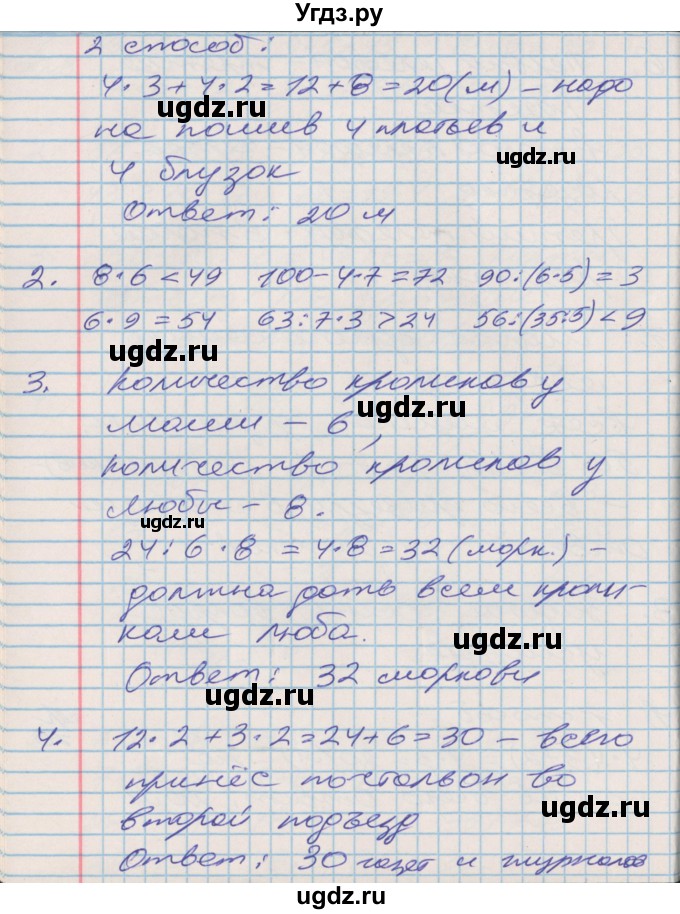 Угдз.ру
2 способ:
4·3+4·2=12+8=20(м) – надо
на пошив 4 платьев и
4 блузок
Ответ: 20 м
2. 8·6<49 100-4·7=72 90:(6·5)=3
6·9=54 63:7·3>24 56:(35:5)<9
3. Количество кроликов у
Маши – 6,
количество кроликов у
Любы – 8.
24:6·8=4·8=32 (морк.) –
должна дать всем кроли-
кам Люба.
Ответ: 32 моркови
4. 12·2+3·2=24+6=30 – всего
принёс почтальон во
второй подъезд
Ответ: 30 газет и журналов
ugdz.ru
ugdz.ru
ugdz.ru
ugdz.ru
ugdz.ru
ugdz.ru
ugdz.ru
ugdz.ru
ugdz.ru
ugdz.ru
ugdz.ru